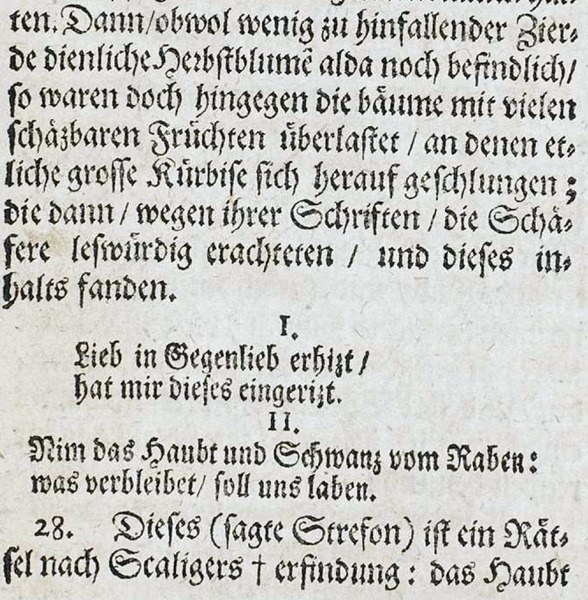 ten. Dann/obwol wenig zu hinfallender Zier⸗
de dienliche Herbstblumẽ alda noch befindlich/
so waren doch hingegen die bäume mit vielen
schäzbaren Früchten überlastet / an denen et⸗
liche grosse Kürbise sich herauf geschlungen;
die dann / wegen ihrer Schriften / die Schä⸗
fere leswürdig erachteten / und dieses in⸗
halts fanden.
I.
Lieb in Gegenlieb erhizt /
hat mir dieses eingerizt.
II.
Nim das Haubt und Schwanz vom Raben:
was verbleibet/ soll uns laben.
28. Dieses (sagte Strefon) ist ein Rät⸗
sel nach Scaligers † erfindung: das Haubt